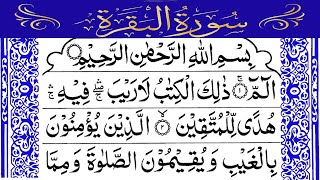 سُورَةُ الْبَقَرَةِ
بِسْمِ اللّٰهِ الرَّحْمٰنِ الرَّحِيْمِ
الٓمّٓ ۚ﴿۱﴾ ذٰلِكَ الْكِتٰبُ لَا رَيْبَ ۛۚ فِيْهِ ۛۚ
هُدًى لِّلْمُتَّقِيْنَ ۙ﴿۲﴾ الَّذِيْنَ يُؤْمِنُوْنَ
بِالْغَيْبِ وَ يُقِيْمُوْنَ الصَّلٰوةَ وَ مِمَّا